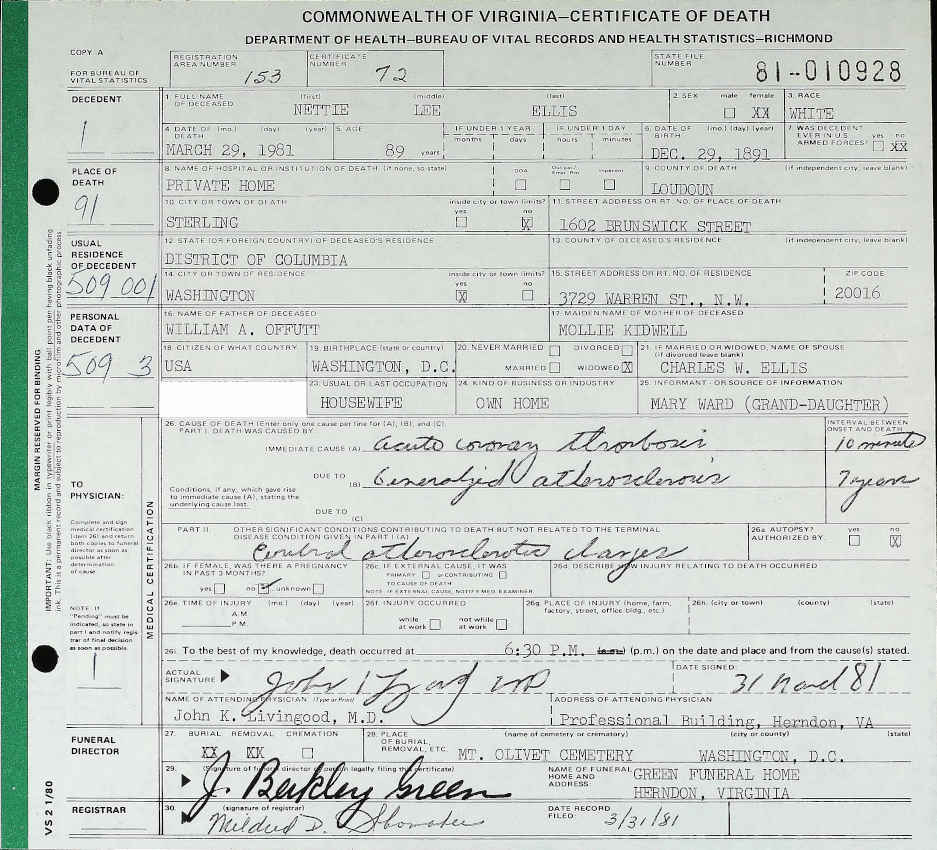 COMMONWEALTH OF VIRGINIA—CERTIFICATE OF DEATH
DEPARTMENT OF HEALTH—BUREAU OF VITAL RECORDS AND HEALTH STATISTICS—RICHMOND
COPY A
FOR BUREAU OF VITAL STATISTICS
REGISTRATION AREA NUMBER 153
CERTIFICATE NUMBER 72
STATE FILE NUMBER 81-010928
DECEDENT
1
1. FULL NAME OF DECEASED (first) (middle) (last)
NETTIE LEE ELLIS
2. SEX male female XX
3. RACE
WHITE
4. DATE OF DEATH (mo.) (day) (year)
MARCH 29, 1981
5. AGE
89 years
IF UNDER 1 YEAR
months days
IF UNDER 1 DAY
hours minutes
6. DATE OF BIRTH (mo.) (day) (year)
DEC. 29, 1891
7. WAS DECEDENT EVER IN U.S. ARMED FORCES? yes no XX
PLACE OF DEATH
91
8. NAME OF HOSPITAL OR INSTITUTION OF DEATH (if none, so state)
PRIVATE HOME
DOA
Inpatient
9. COUNTY OF DEATH (if independent city, leave blank)
LOUDOUN
10. CITY OR TOWN OF DEATH
STERLING
inside city or town limits?
yes no X
11. STREET ADDRESS OR RT. NO. OF PLACE OF DEATH
1602 BRUNSWICK STREET
USUAL RESIDENCE OF DECEDENT
509 001
12. STATE (OR FOREIGN COUNTRY) OF DECEASED'S RESIDENCE
DISTRICT OF COLUMBIA
13. COUNTY OF DECEASED'S RESIDENCE (if independent city, leave blank)
14. CITY OR TOWN OF RESIDENCE
WASHINGTON
inside city or town limits?
yes X no
15. STREET ADDRESS OR RT. NO. OF RESIDENCE
3729 WARREN ST., N.W.
ZIP CODE
20016
PERSONAL DATA OF DECEDENT
509 3
16. NAME OF FATHER OF DECEASED
WILLIAM A. OFFUTT
17. MAIDEN NAME OF MOTHER OF DECEASED
MOLLIE KIDWELL
18. CITIZEN OF WHAT COUNTRY
USA
19. BIRTHPLACE (state or country)
WASHINGTON, D.C.
20. NEVER MARRIED DIVORCED
MARRIED WIDOWED X
21. IF MARRIED OR WIDOWED, NAME OF SPOUSE
(if divorced leave blank)
CHARLES W. ELLIS
23. USUAL OR LAST OCCUPATION
HOUSEWIFE
24. KIND OF BUSINESS OR INDUSTRY
OWN HOME
25. INFORMANT - OR SOURCE OF INFORMATION
MARY WARD (GRAND-DAUGHTER)
MARGIN RESERVED FOR BINDING
IMPORTANT: Use black ribbon in typewriter or print legibly with ball point pen having black unfading ink. This is a permanent record and subject to reproduction by microfilm and other photographic process.
TO PHYSICIAN:
Complete and sign medical certification (item 26) and return both copies to funeral director as soon as possible after determination of cause
NOTE: If "Pending" must be indicated, so state in part I and notify registrar of final decision as soon as possible.
1
MEDICAL CERTIFICATION
26. CAUSE OF DEATH (Enter only one cause per line for (A), (B), and (C).
PART I. DEATH WAS CAUSED BY
INTERVAL BETWEEN ONSET AND DEATH
IMMEDIATE CAUSE (A) Acute coronary thrombosis 10 minutes
DUE TO (B) Generalized atherosclerosis 7 years
Conditions, if any, which gave rise to immediate cause (A), stating the underlying cause last.
DUE TO (C)
PART II. OTHER SIGNIFICANT CONDITIONS CONTRIBUTING TO DEATH BUT NOT RELATED TO THE TERMINAL DISEASE CONDITION GIVEN IN PART I (A)
Cerebral atherosclerotic changes
26a. AUTOPSY? AUTHORIZED BY: yes no X
26b. IF FEMALE, WAS THERE A PREGNANCY IN PAST 3 MONTHS?
yes no unknown
26c. IF EXTERNAL CAUSE, IT WAS
PRIMARY or CONTRIBUTING
TO CAUSE OF DEATH
NOTE: IF EXTERNAL CAUSE, NOTIFY MED. EXAMINER
26d. DESCRIBE HOW INJURY RELATED TO DEATH OCCURRED
26e. TIME OF INJURY (mo.) (day) (year)
A.M.
P.M.
26f. INJURY OCCURRED
while at work not while at work
26g. PLACE OF INJURY (home, farm, factory, street, office bldg., etc.)
26h. (city or town) (county) (state)
26i. To the best of my knowledge, death occurred at 6:30 P.M. (a.m.) (p.m.) on the date and place and from the cause(s) stated.
ACTUAL SIGNATURE
DATE SIGNED:
31 March 81
NAME OF ATTENDING PHYSICIAN (Type or Print)
John K. Livingood, M.D.
ADDRESS OF ATTENDING PHYSICIAN
Professional Building, Herndon, VA
FUNERAL DIRECTOR
27. BURIAL REMOVAL CREMATION
XX XX
28. PLACE OF BURIAL, REMOVAL, ETC. (name of cemetery or crematory) (city or county) (state)
MT. OLIVET CEMETERY WASHINGTON, D.C.
29. (Signature of funeral director or person legally filing the certificate)
J. Berkley Green
NAME OF FUNERAL HOME AND ADDRESS
GREEN FUNERAL HOME
HERNDON, VIRGINIA
REGISTRAR
30. (signature of registrar)
Mildred D.
DATE RECORD FILED:
3/31/81
VS 2 1/80